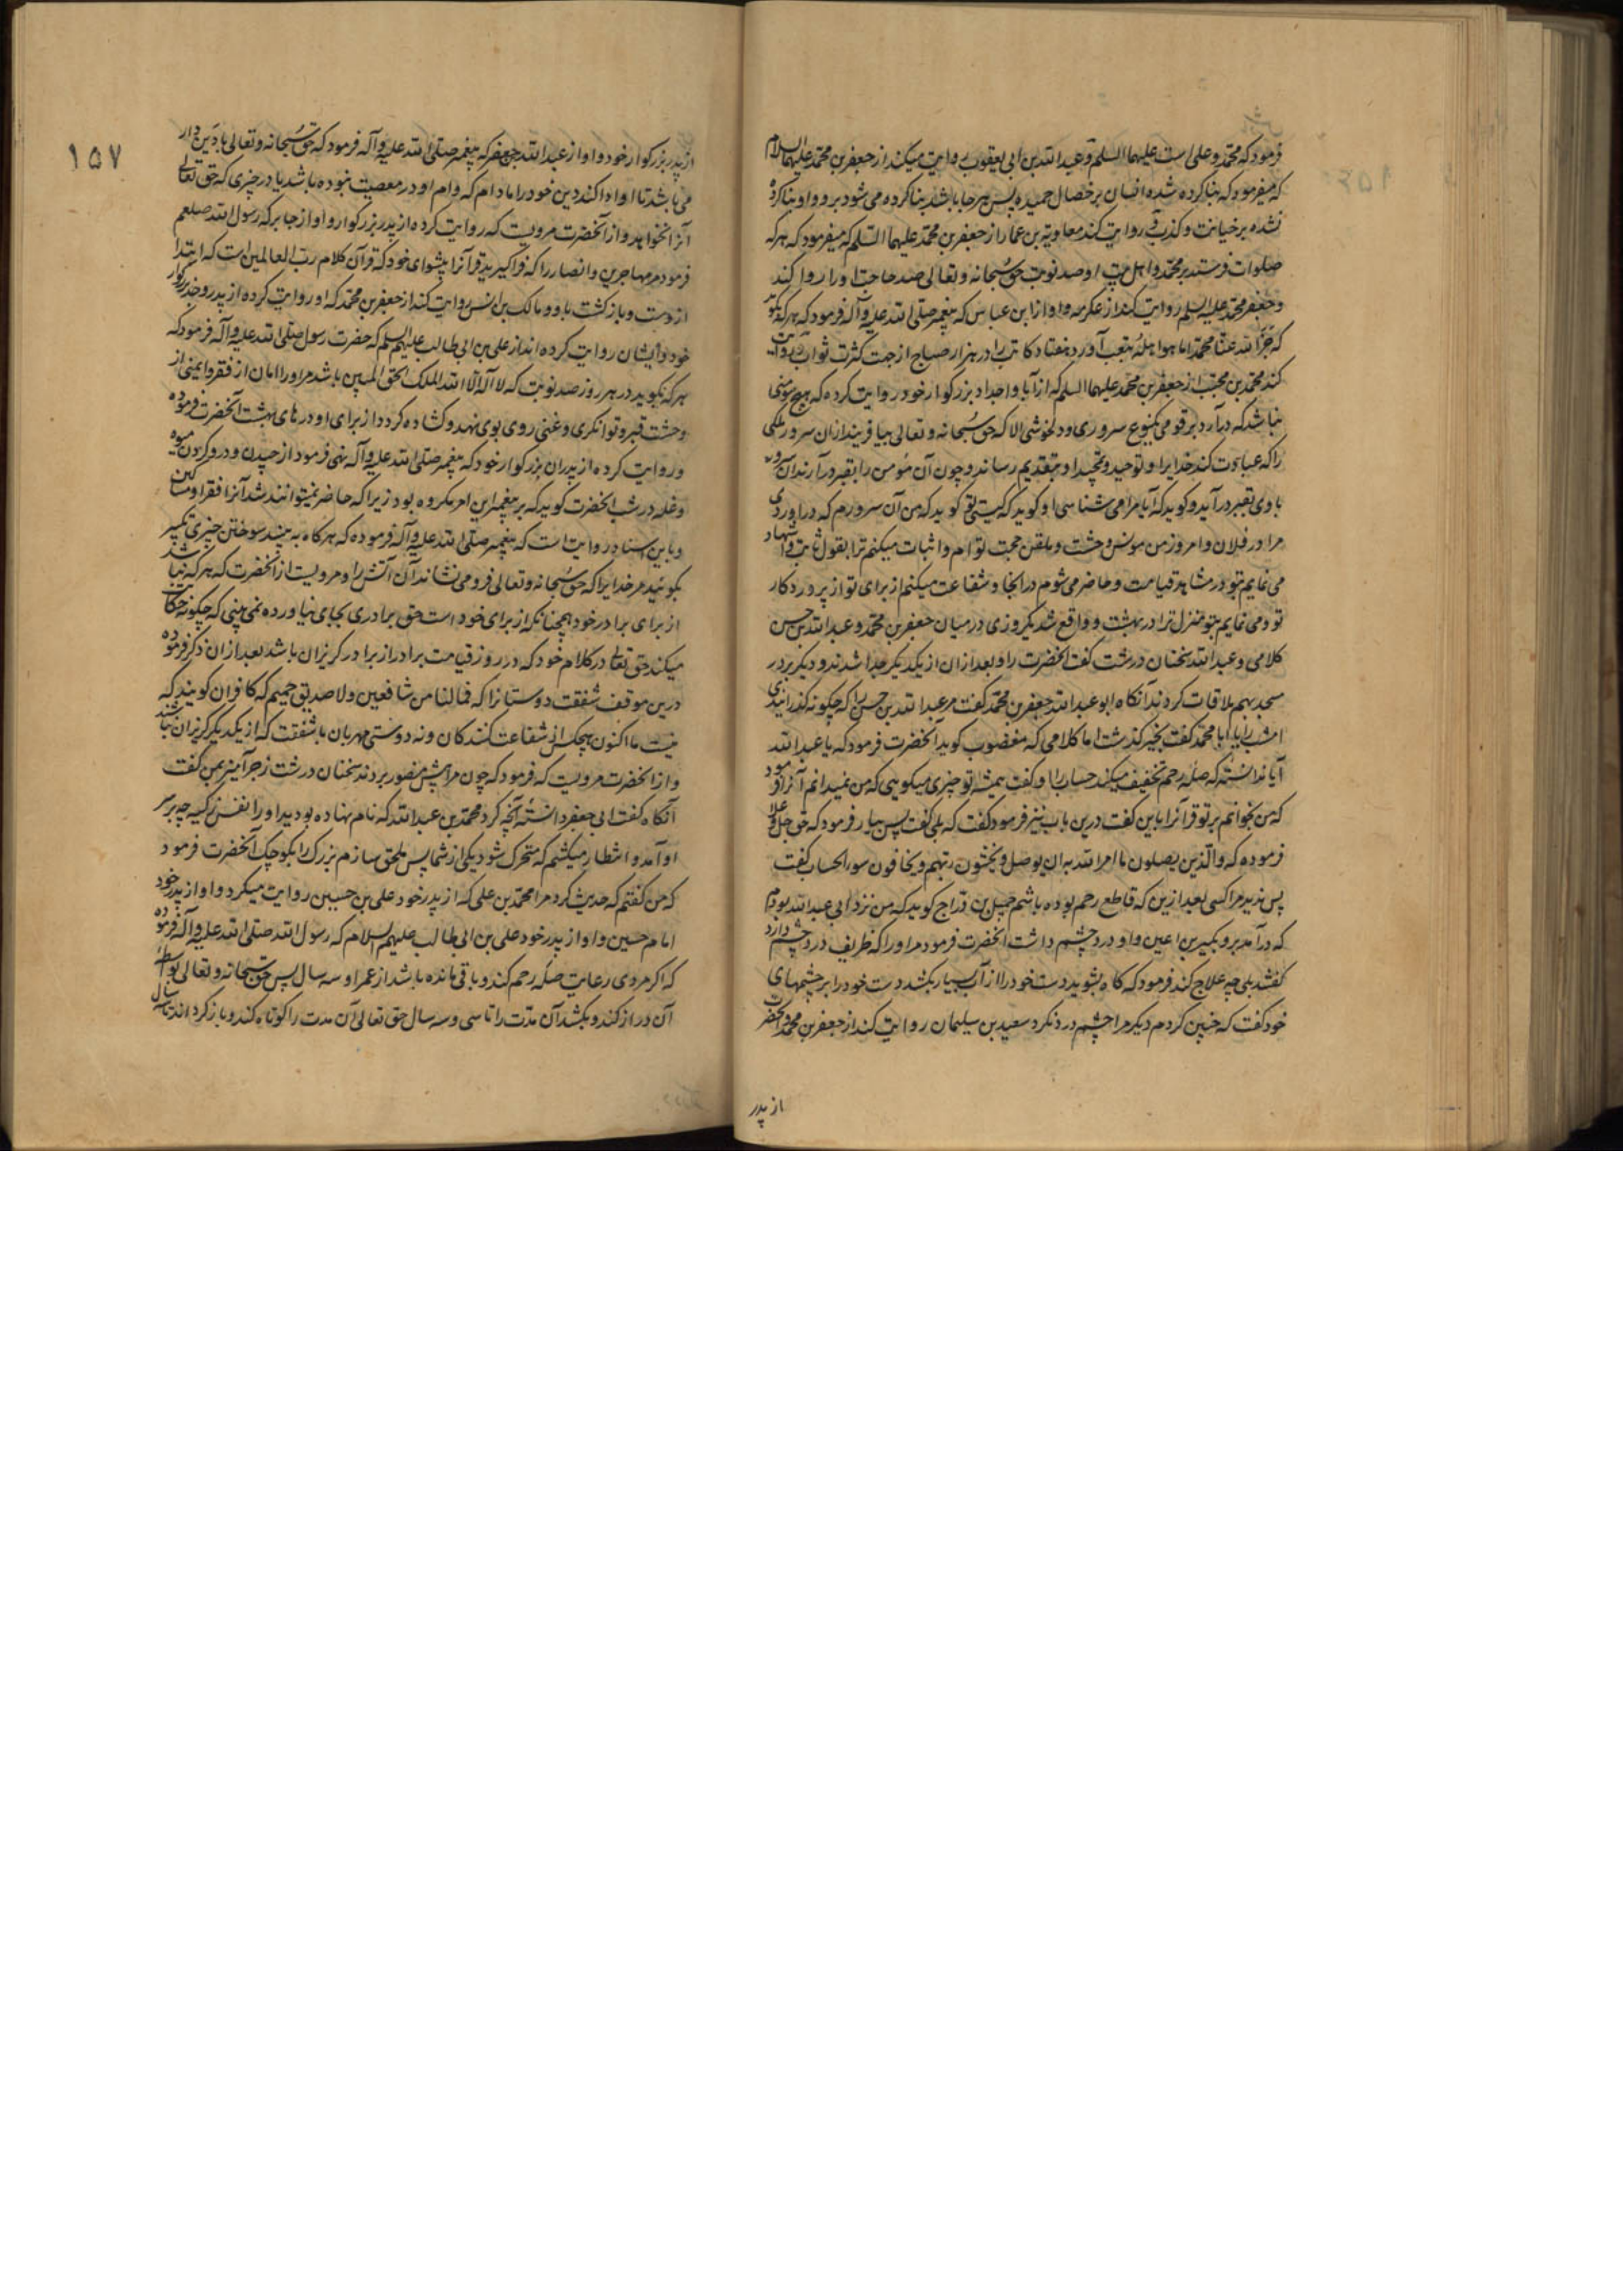 فرمود که محمد و علی است علیهما السلم و عبد الله بن ابی یعقوب روایت میکند از جعفر بن محمد علیهما السلام
که میفرمود که بنا کرده شده انسان بر خصال حمیده پس هر جا باشد بنا کرده می شود برو و او بنا کرده
نشده بر خیانت و کذب و روایت کند معاویة بن عمار از جعفر بن محمد علیهما السلم که میفرمود که هر که
صلوات فرستد بر محمد و اهل بیت او صد نوبت حق سبحانه و تعالی صد حاجت او را روا کند
و جعفر محمد علیه السلم روایت کند از عکرمه و او از ابن عباس که پیغمبر صلی الله علیه و آله فرمود که هر که بگوید
که جزا الله عنا محمدا ما هو اهله بتعب آورد هفتاد کاتب را در هزار صباح از جهت کثرت ثواب و روایت
کند محمد بن مجیب از جعفر بن محمد علیهما السلم که از آبا و اجداد بزرگوار خود روایت کرده که هیچ مؤمنی
نباشد که درآرد بر قومی بنوع سروری و دلخوشی الا که حق سبحانه و تعالی بیافریند از ان سرور ملکی
را که عبادت کند خدایرا و توحید و تمجید او بتقدیم رساند و چون آن مؤمن را بقبر درآرند آن سرور
باوی بقبر درآید و گوید که آیا مرا می شناسی او گوید که کیستی تو گوید که من آن سرورم که دراوردی
مرا در فلان و امروز من مونس وحشت و ملقن حجت توام و اثبات میکنم ترا بقول ثابت و اشهاد
می نمایم بتو در مشاهد قیامت و حاضر می شوم در آنجا و شفاعت میکنم از برای تو از پروردکار
تو و می نمایم بتو منزل ترا در بهشت و واقع شد یکروزی در میان جعفر بن محمد و عبد الله بن حسن
کلامی و عبد الله سخنان درشت گفت انحضرت را و بعد از ان از یکدیگر جدا شدند و دیگر بر در
مسجد بهم ملاقات کردند آنگاه ابو عبد الله جعفر بن محمد گفت مر عبد الله بن حسن را که چگونه گذرانیدی
امشب را یا ابا محمد گفت بخیر گذشت اما کلامی که مغضوب گوید آنحضرت فرمود که یا عبد الله
آیا ندانستهٔ که صلهٔ رحم تخفیف میکند حساب را و گفت همیشه تو چیزی میکویی که من نمیدانم آنرا فرمود
که من بخوانم بر تو قرآنرا باین گفت درین باب نیز فرمود گفت که بلی گفت پس بیار فرمود که حق جل و علا
فرموده که والذین یصلون ما امر الله به ان یوصل و یخشون ربهم و یخافون سوء الحساب گفت
پس ندید مرا کسی بعد ازین که قاطع رحم بوده باشم جمیل بن دراج گوید که من نزد ابی عبد الله بودم
که درآمد برو بکیر بن اعین و او درد چشم داشت انحضرت فرمود مر او را که ظریف درد چشم دارد
گفتند بلی چه علاج کند فرمود که گاه بشوید دست خود را از آب بسیار بکشد دست خود را بر چشمهای
خود گفت که چنین کردم دیگر مرا چشم درد نکرد سعید بن سلیمان روایت کند از جعفر بن محمد و انحضرت
از پدر
۱۵۷
از پدر بزرگوار خود و او از عبد الله جعفر که پیغمبر صلی الله علیه و آله فرمود که حق سبحانه و تعالی با دین دار
می باشد تا او ادا کند دین خود را مادام که وام او در معصیت نبوده باشد یا در چیزی که حق تعالی
آنرا نخواهد و از آنحضرت مرویست که روایت کرده از پدر بزرگوار و او از جابر که رسول الله صلعم
فرمود مر مهاجرین و انصار را که فراگیرید قرآنرا پیشوای خود که قرآن کلام رب العالمین است که ابتدا
ازوست و بازگشت باو و مالک بن انس روایت کند از جعفر بن محمد که او روایت کرده از پدر و جد بزرگوار
خود و ایشان روایت کرده اند از علی بن ابی طالب علیهم السلم که حضرت رسول صلی الله علیه و آله فرمود که
هر که بگوید در هر روز صد نوبت که لا اله الا الله الملک الحق المبین باشد مر او را امان از فقر و ایمنی از
وحشت قبر و توانگری و غنی روی بوی نهد و گشاده گردد از برای او درهای بهشت آنحضرت فرموده
و روایت کرده از پدران بزرگوار خود که پیغمبر صلی الله علیه و آله نهی فرمود از چیدن و درو کردن میوه
و غله در شب انحضرت گوید که بر پیغمبر این امر مکروه بود زیرا که حاضر نمیتوانند شد آنرا فقرا و مساکین
و باین اسناد روایت است که پیغمبر صلی الله علیه و آله فرموده که هرگاه به بینید سوختن چیزی تکبیر
بگوئید مر خدایرا که حق سبحانه و تعالی فرو می نشاند آن آتش را و مرویست از انحضرت که هر که نباشد
از برای برادر خود همچنانکه از برای خود است حق برادری بجای نیاورده نمی بینی که چگونه حکایت
میکند حق تعالی در کلام خود که در روز قیامت برادر از برادر گریزان باشد بعد از ان ذکر فرموده
درین موقف شفقت دوستانرا که فما لنا من شافعین ولا صدیق حمیم که کافران گویند که
نیست ما را کنون هیچکس از شفاعت کنندگان و نه دوستی مهربان با شفقت که از یکدیگر گریزان نباشند
و از انحضرت مرویست که فرمود که چون مرا پیش منصور بردند سخنان درشت زجر آمیز بمن گفت
آنگاه گفت ای جعفر دانستهٔ آنچه کرد محمد بن عبد الله که نام نهاده بودید او را نفس زکیه چه بر سر
او آمد و انتظار میکشم که متحرک شود یکی از شما پس ملحق سازم بزرگ را بکوچک آنحضرت فرمود
که من گفتم که حدیث کرد مرا محمد بن علی که از پدر خود علی بن حسین روایت میکرد و او از پدر خود
امام حسین و او از پدر خود علی بن ابی طالب علیهم السلام که رسول الله صلی الله علیه و آله فرموده
که اگر مردی رعایت صلهٔ رحم کند و باقی مانده باشد از عمر او سه سال پس حق سبحانه و تعالی بواسطهٔ
آن دراز کند و بکشد آن مدت را تا سی و سه سال حق تعالی آن مدت را کوتاه کند و باز گرداند تا سه سال